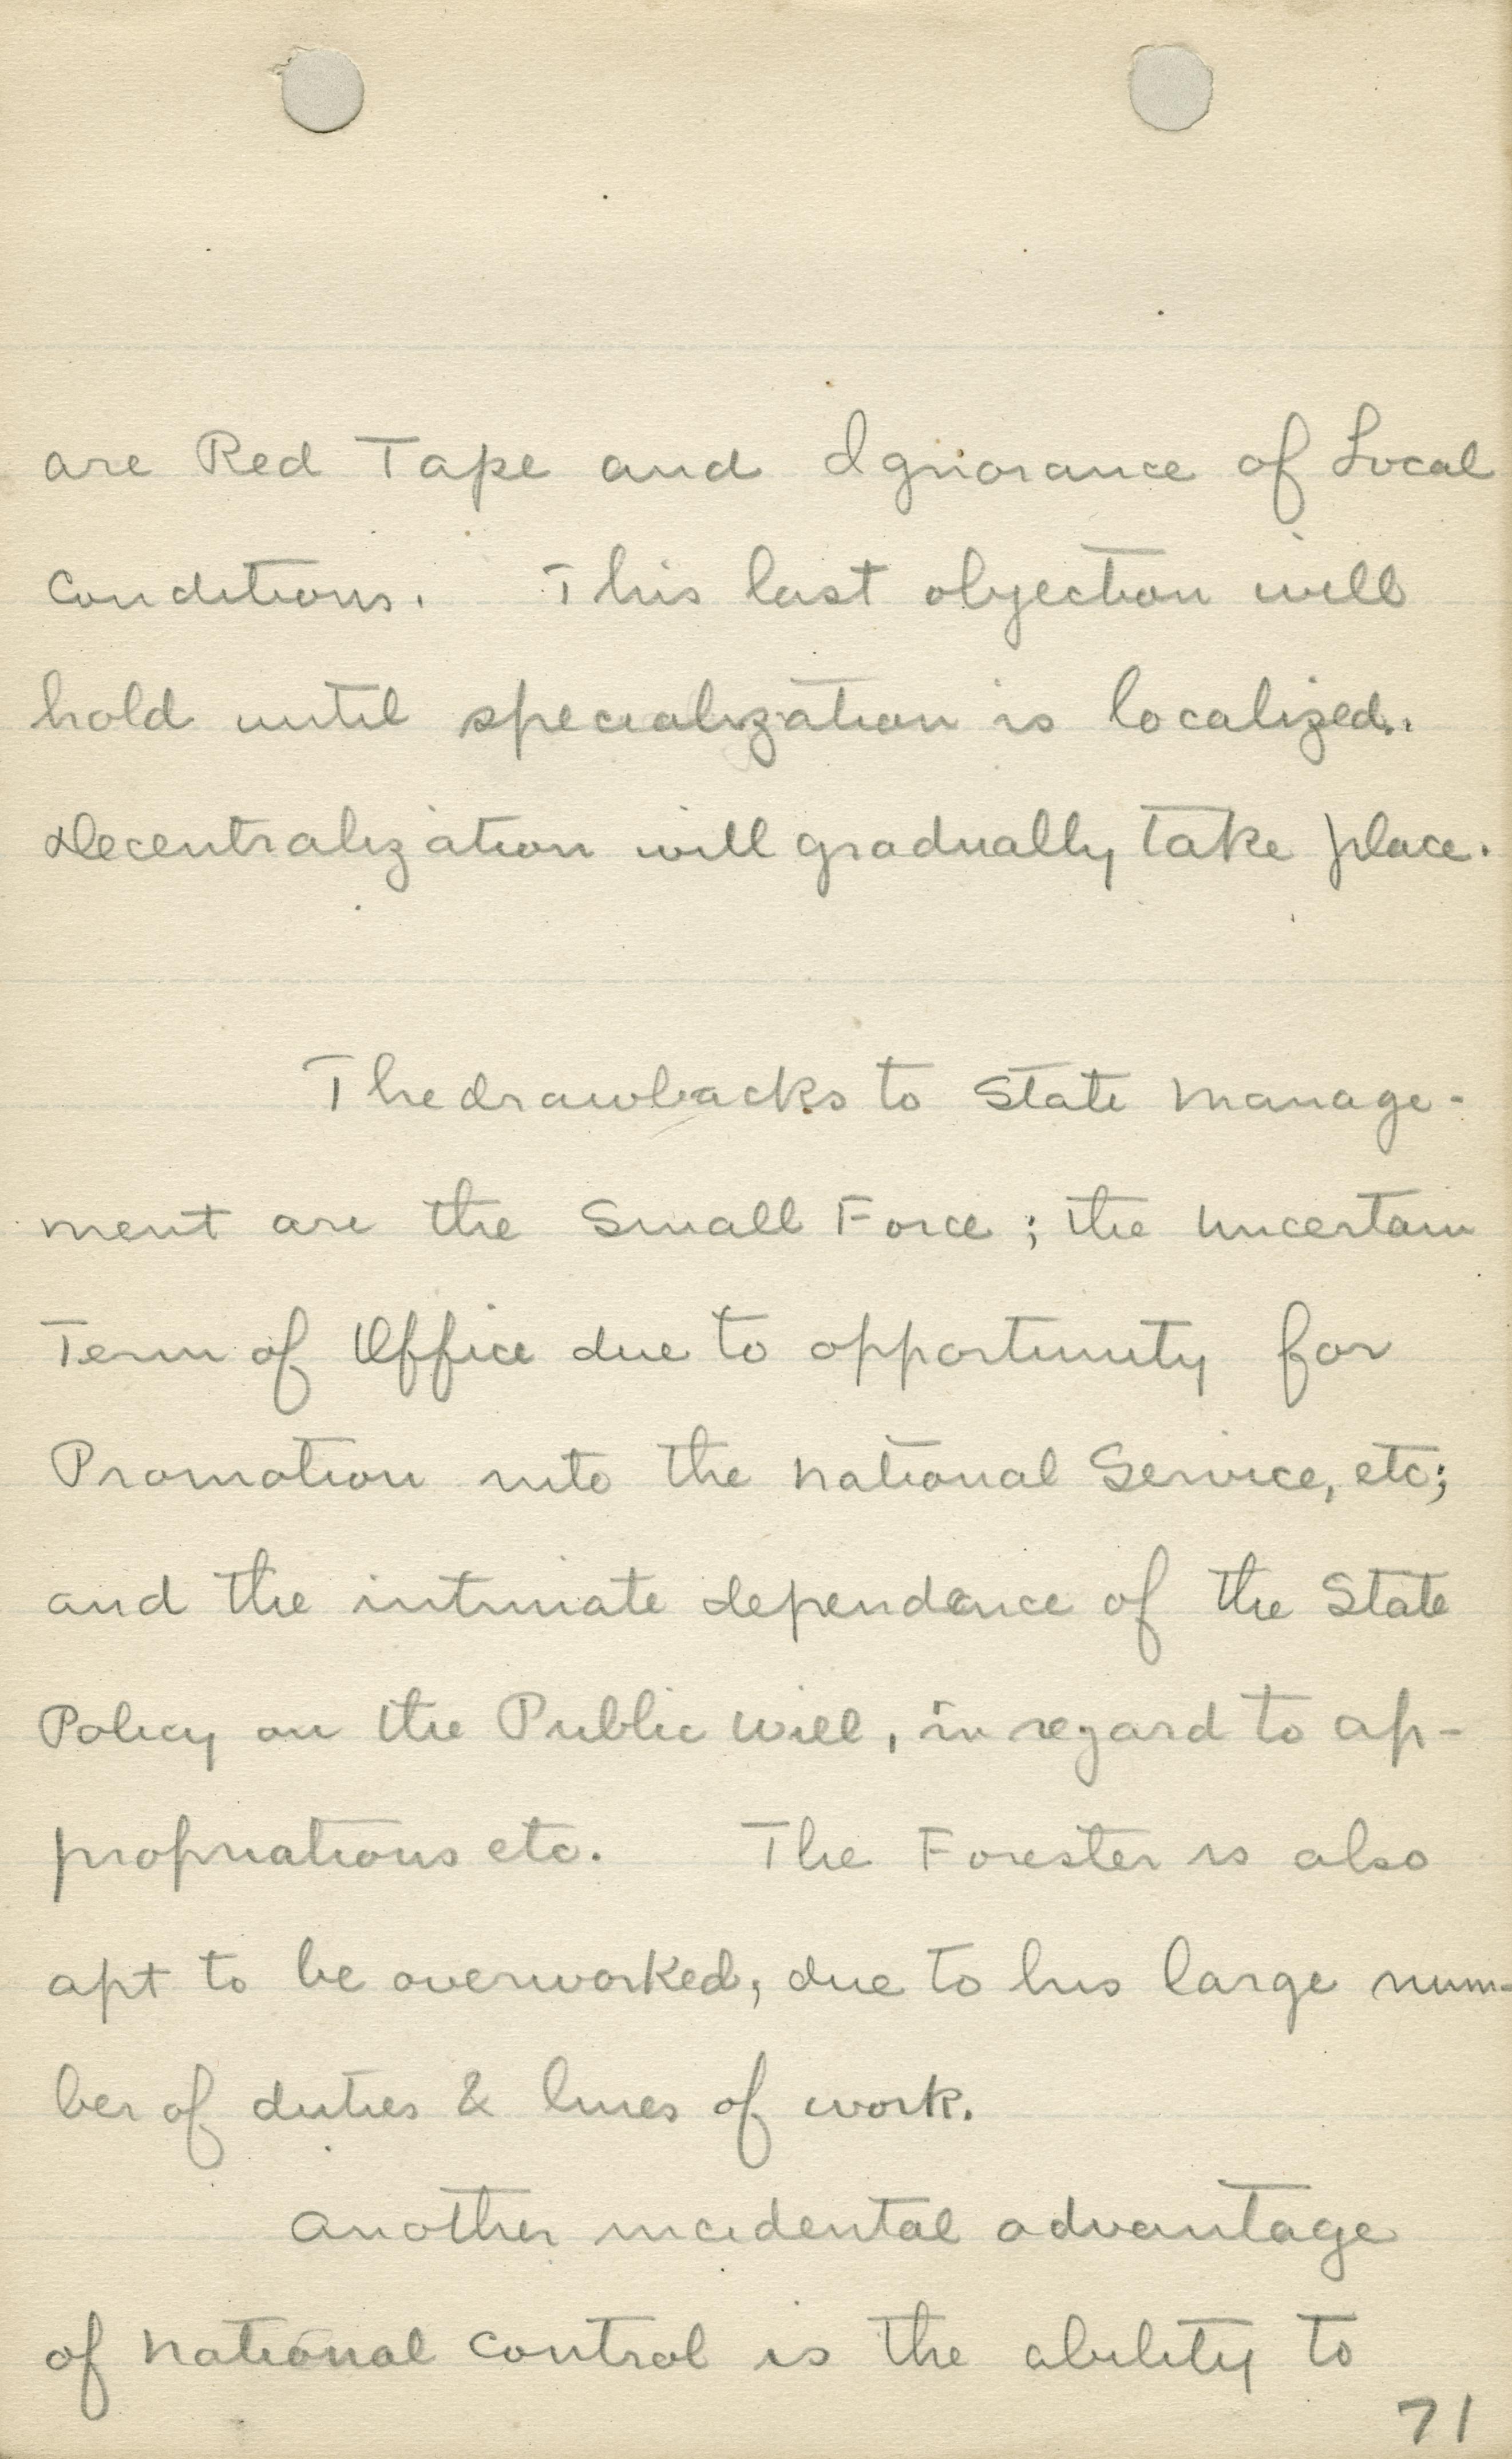 are Red Tape and Ignorance of Local
Conditions. This last objection will
hold until specialization is localized.
Decentralization will gradually take place.
The drawbacks to State Manage-
ment are the Small Force; the Uncertain
Term of Office due to opportunity for
Promotion into the National Service, etc;
and the intimate dependence of the State
Policy on the Public Will, in regard to ap-
propriations etc. The Forester is also
apt to be overworked, due to his large num-
ber of duties & lines of work.
Another incidental advantage
of National Control is the ability to
71